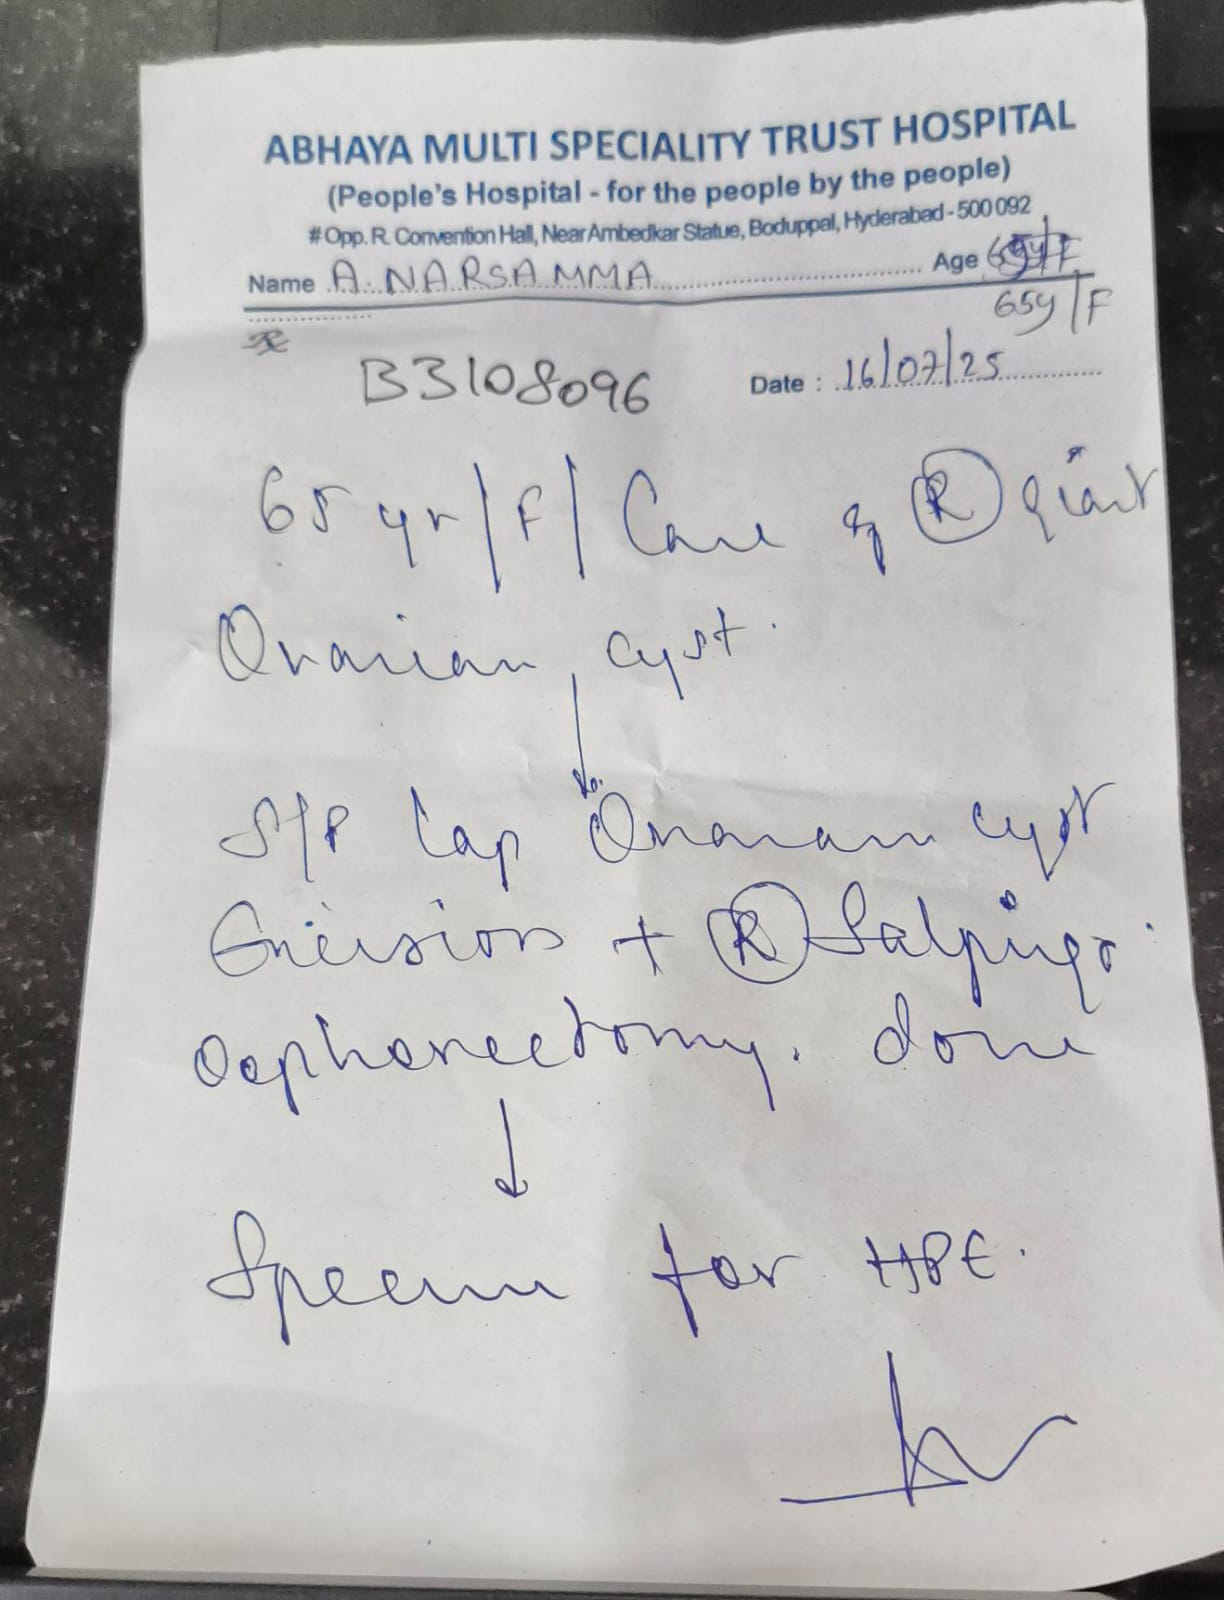 ABHAYA MULTI SPECIALITY TRUST HOSPITAL
(People's Hospital - for the people by the people)
# Opp. R. Convention Hall, Near Ambedkar Statue, Boduppal, Hyderabad - 500 092
Name A. NARSAMMA Age
65y/F
B3108096 Date : 16/07/25
65 yr/F/ Case of (R) giant
Ovarian cyst.
S/P Lap Ovarian cyst
Excision + (R) Salpingo
Oophorectomy. done
Specimen for HPE.